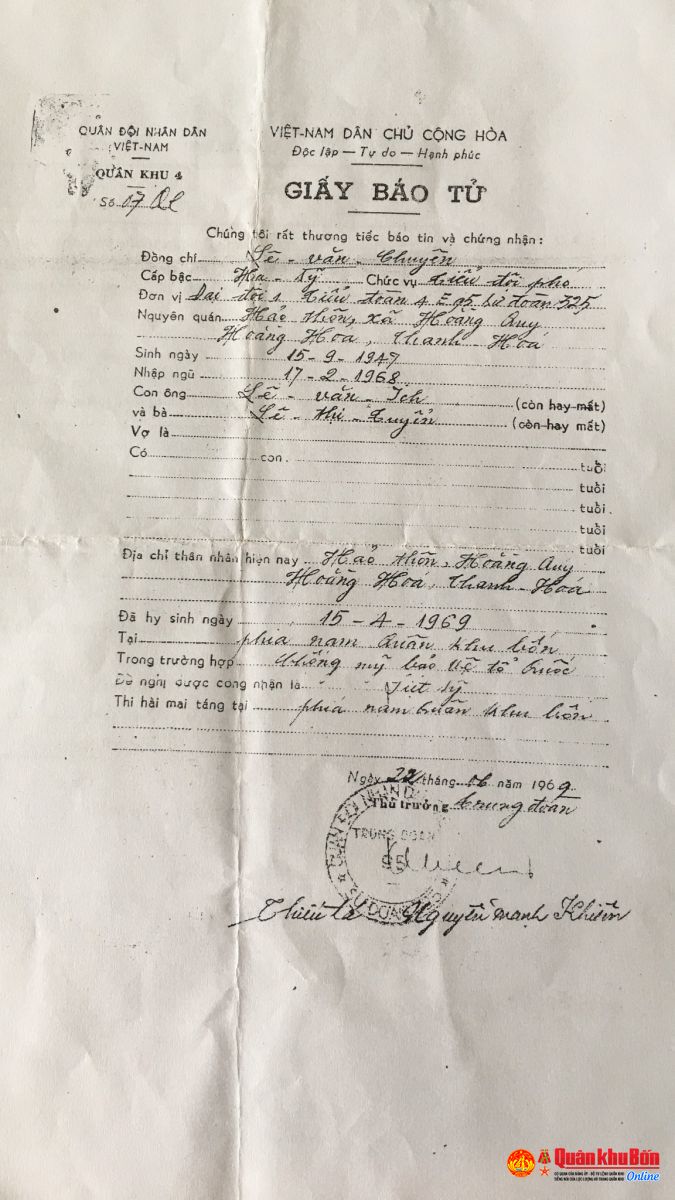 QUÂN ĐỘI NHÂN DÂN
VIỆT-NAM
QUÂN KHU 4
Số 07
VIỆT-NAM DÂN CHỦ CỘNG HÒA
Độc lập — Tự do — Hạnh phúc
GIẤY BÁO TỬ
Chúng tôi rất thương tiếc báo tin và chứng nhận :
Đồng chí Lê - văn - Chuyên
Cấp bậc Hạ - sỹ Chức vụ tiểu đội phó
Đơn vị Đại đội 1 tiểu đoàn 4 E 95 sư đoàn 325
Nguyên quán Hảo thôn, xã Hoằng Quy
Hoằng Hoá, Thanh - Hoá
Sinh ngày 15-9-1947
Nhập ngũ 17-2-1968
Con ông Lê - văn - Ích (còn hay mất)
và bà Lê - thị - Tuyển (còn hay mất)
Vợ là
Có con tuổi
tuổi
tuổi
tuổi
tuổi
Địa chỉ thân nhân hiện nay Hảo thôn, Hoằng Quy
Hoằng Hoá, Thanh - Hoá
Đã hy sinh ngày 15-4-1969
Tại phía nam quân khu bốn
Trong trường hợp chống mỹ bảo vệ tổ quốc
Đề nghị được công nhận là liệt sỹ
Thi hài mai táng tại phía nam quân khu bốn
Ngày 22 tháng 06 năm 1969
Thủ trưởng trung đoàn
TRUNG ĐOÀN
95
Thiếu tá Nguyễn mạnh Khiên
Quân khu Bốn
CƠ QUAN CỦA ĐẢNG ỦY - BỘ TƯ LỆNH QUÂN KHU
TIẾNG NÓI CỦA LỰC LƯỢNG VŨ TRANG QUÂN KHU
Online